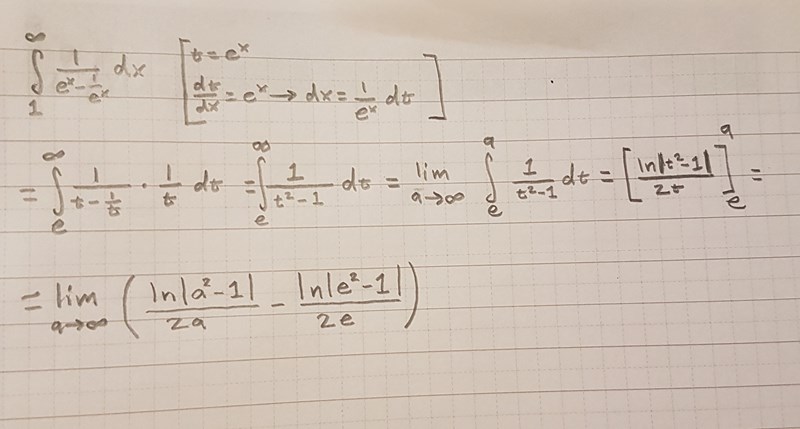 ∫₁^∞ 1/(eˣ - 1/eˣ) dx [t = eˣ
dt/dx = eˣ → dx = 1/eˣ dt]
= ∫ₑ^∞ 1/(t - 1/t) · 1/t dt = ∫ₑ^∞ 1/(t² - 1) dt = lim a→∞ ∫ₑ^a 1/(t² - 1) dt = [ln|t² - 1|/2t]ₑ^a =
= lim a→∞ (ln|a² - 1|/2a - ln|e² - 1|/2e)